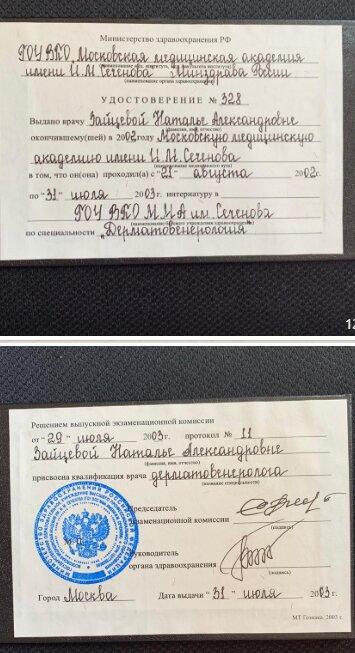 Министерство здравоохранения РФ
ГОУ ВПО Московская медицинская академия
имени И.М.Сеченова Минздрава России
(наименование органа здравоохранения)
УДОСТОВЕРЕНИЕ № 328
Выдано врачу Зайцевой Наталье Александровне
(фамилия, имя, отчество)
окончившему(шей) в 2002 году Московскую медицинскую
академию имени И.М.Сеченова
в том, что он(она) проходил(а) с "21" августа 2002 г.
по "31" июля 2003 г. интернатуру в
ГОУ ВПО ММА им Сеченова
по специальности „Дерматовенерология"
Решением выпускной экзаменационной комиссии
от "29" июля 2003 г. протокол № 11
Зайцевой Наталье Александровне
(фамилия, имя, отчество)
присвоена квалификация врача дерматовенеролога
(название специальности)
Председатель
экзаменационной комиссии
(подпись)
М.П.
Руководитель
органа здравоохранения
(подпись)
Город Москва Дата выдачи "31" июля 2003 г.
МТ Гознака, 2003 г.